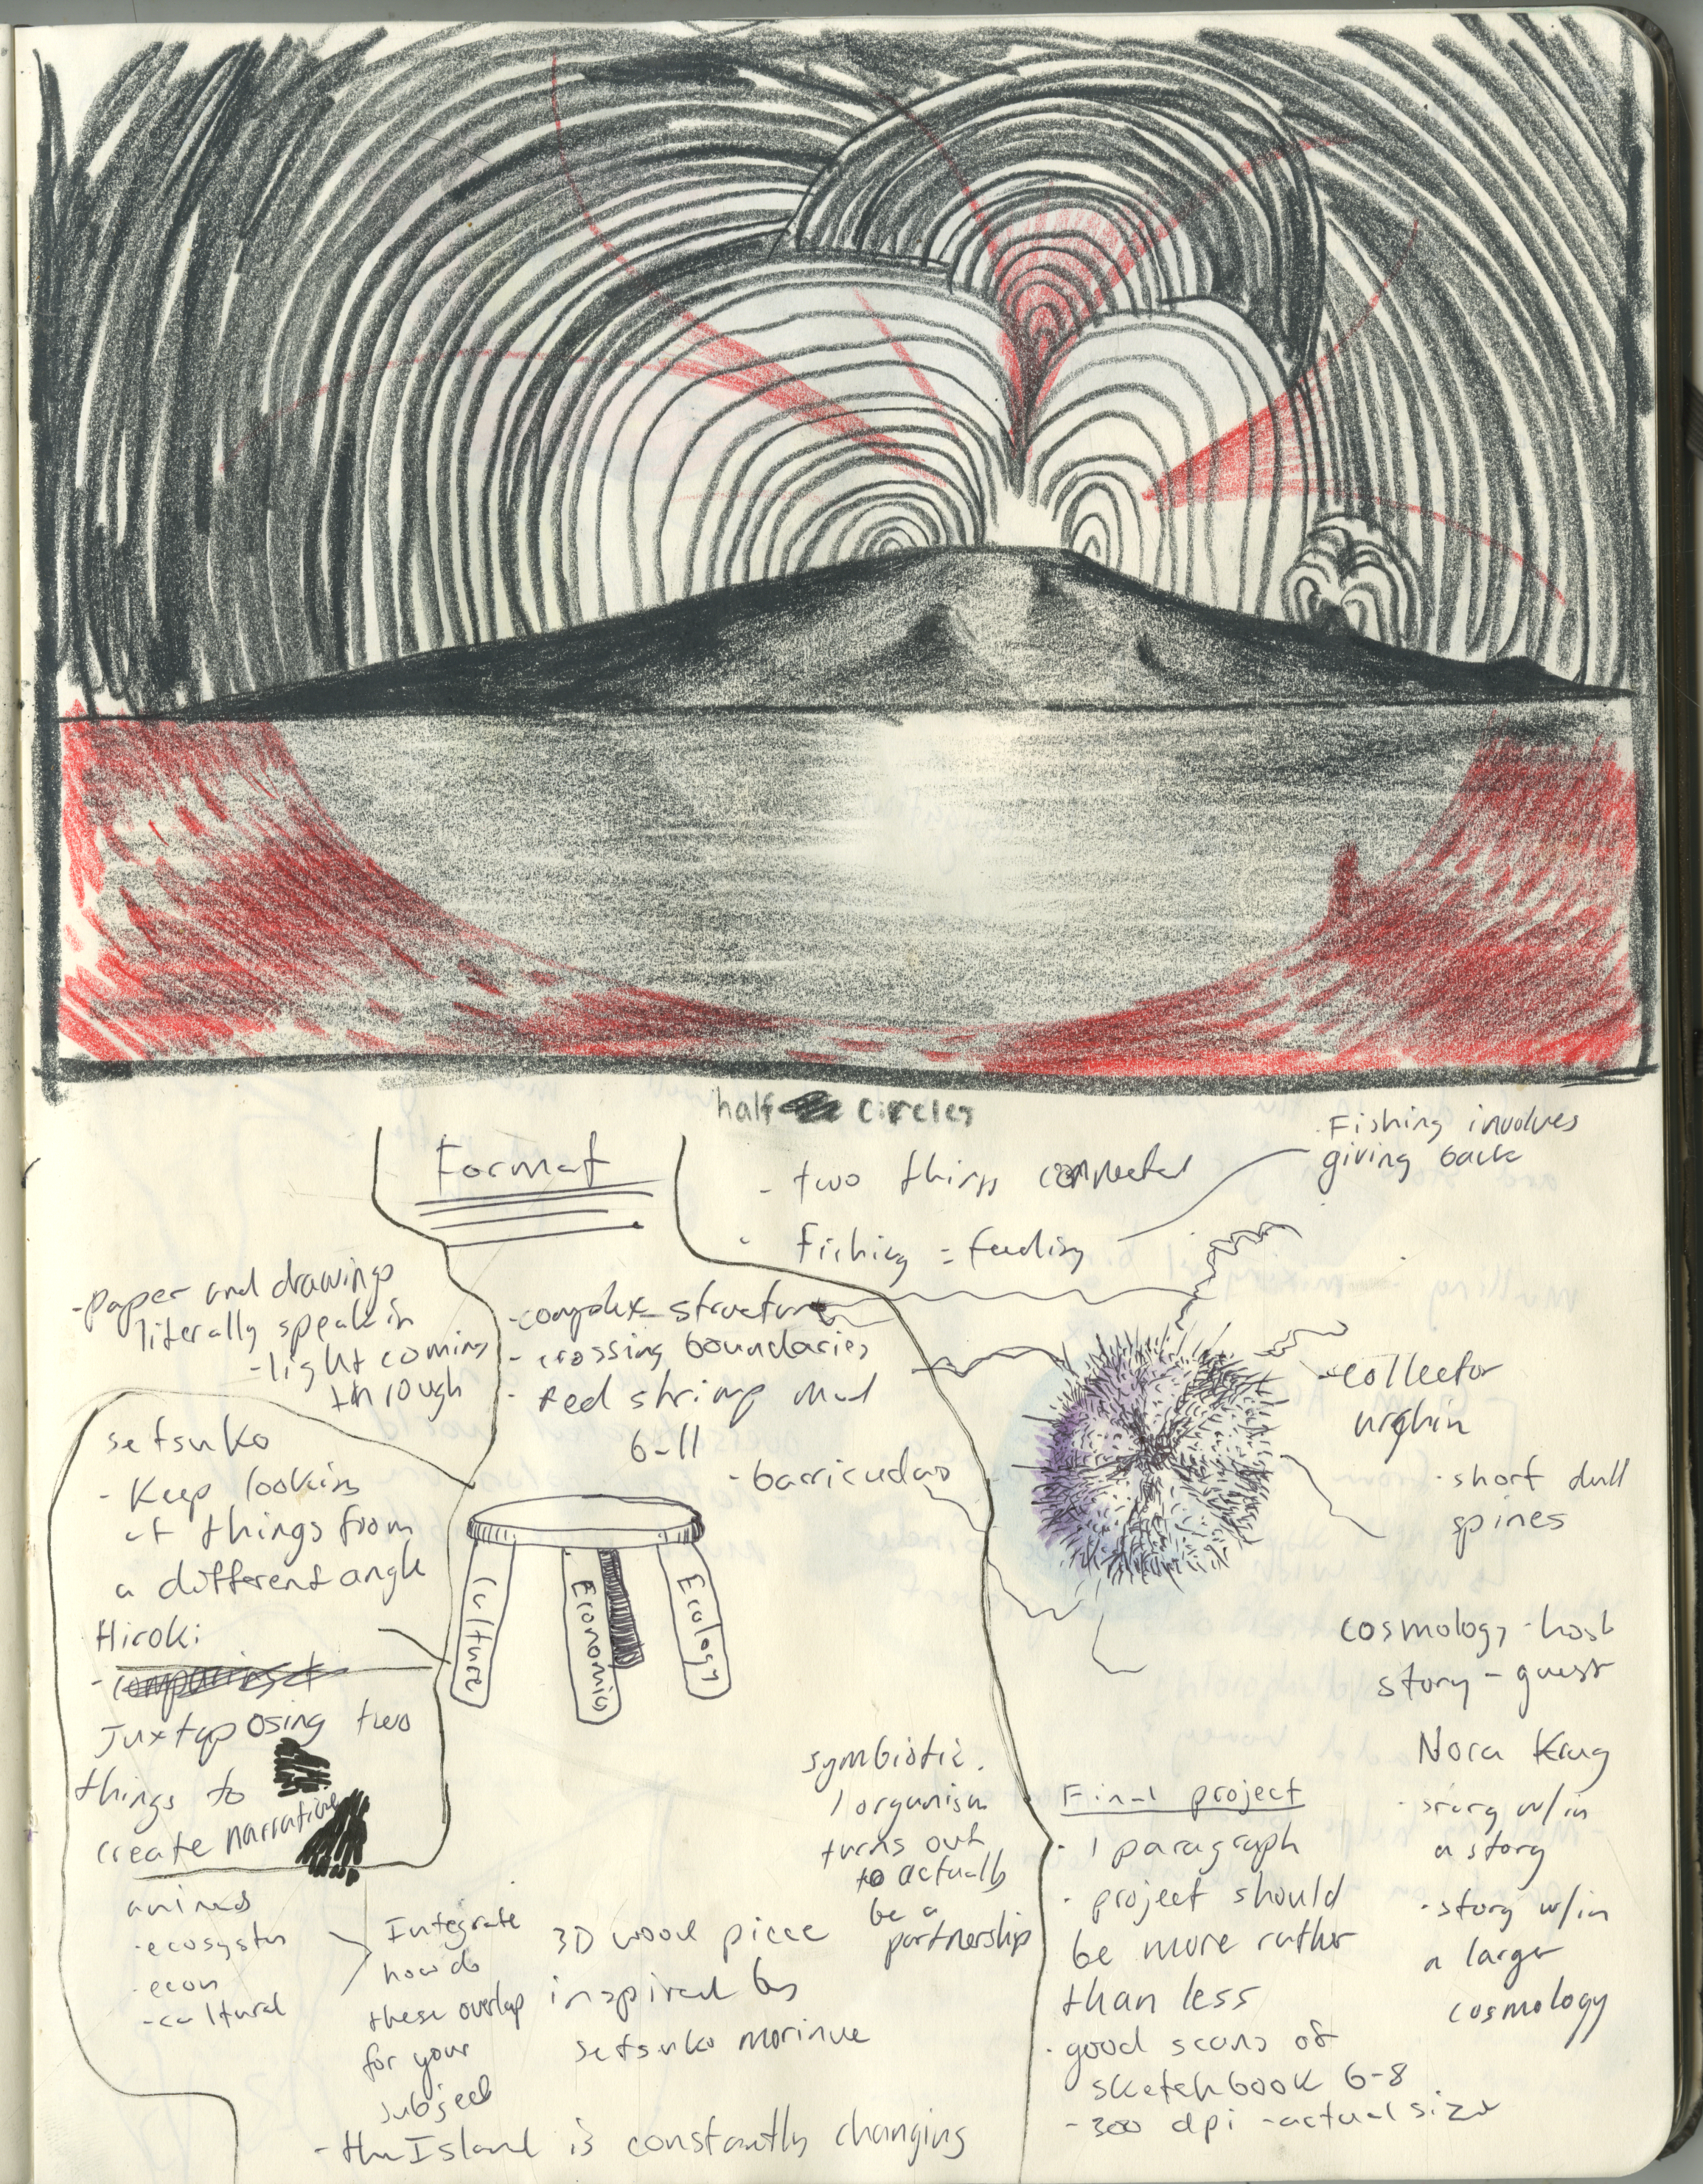 half circles
Format
- two things connected
- fishing = feeding
. Fishing involves
giving back
- paper and drawings
literally speak in
- light coming
through
- complex structure
- crossing boundaries
- red shrimp mud
6-11
- barricudas
- collector
urchin
. short dull
spines
setsuko
- Keep looking
at things from
a different angle
Hiroki:
Juxtaposing two
things to
create narrative
Culture
Economics
Ecology
cosmology - host
story - guest
Nora Krug
- story w/in
a story
. story w/in
a larger
cosmology
symbiotic.
1 organism
turns out
to actually
be a
partnership
Final project
. 1 paragraph
. project should
be more rather
than less
. good scans of
sketchbook 6-8
- 300 dpi - actual size
. econ
- cultural
Integrate
how do
these overlap
for your
subject
3D wood piece
inspired by
setsuko morinue
- the Island is constantly changing